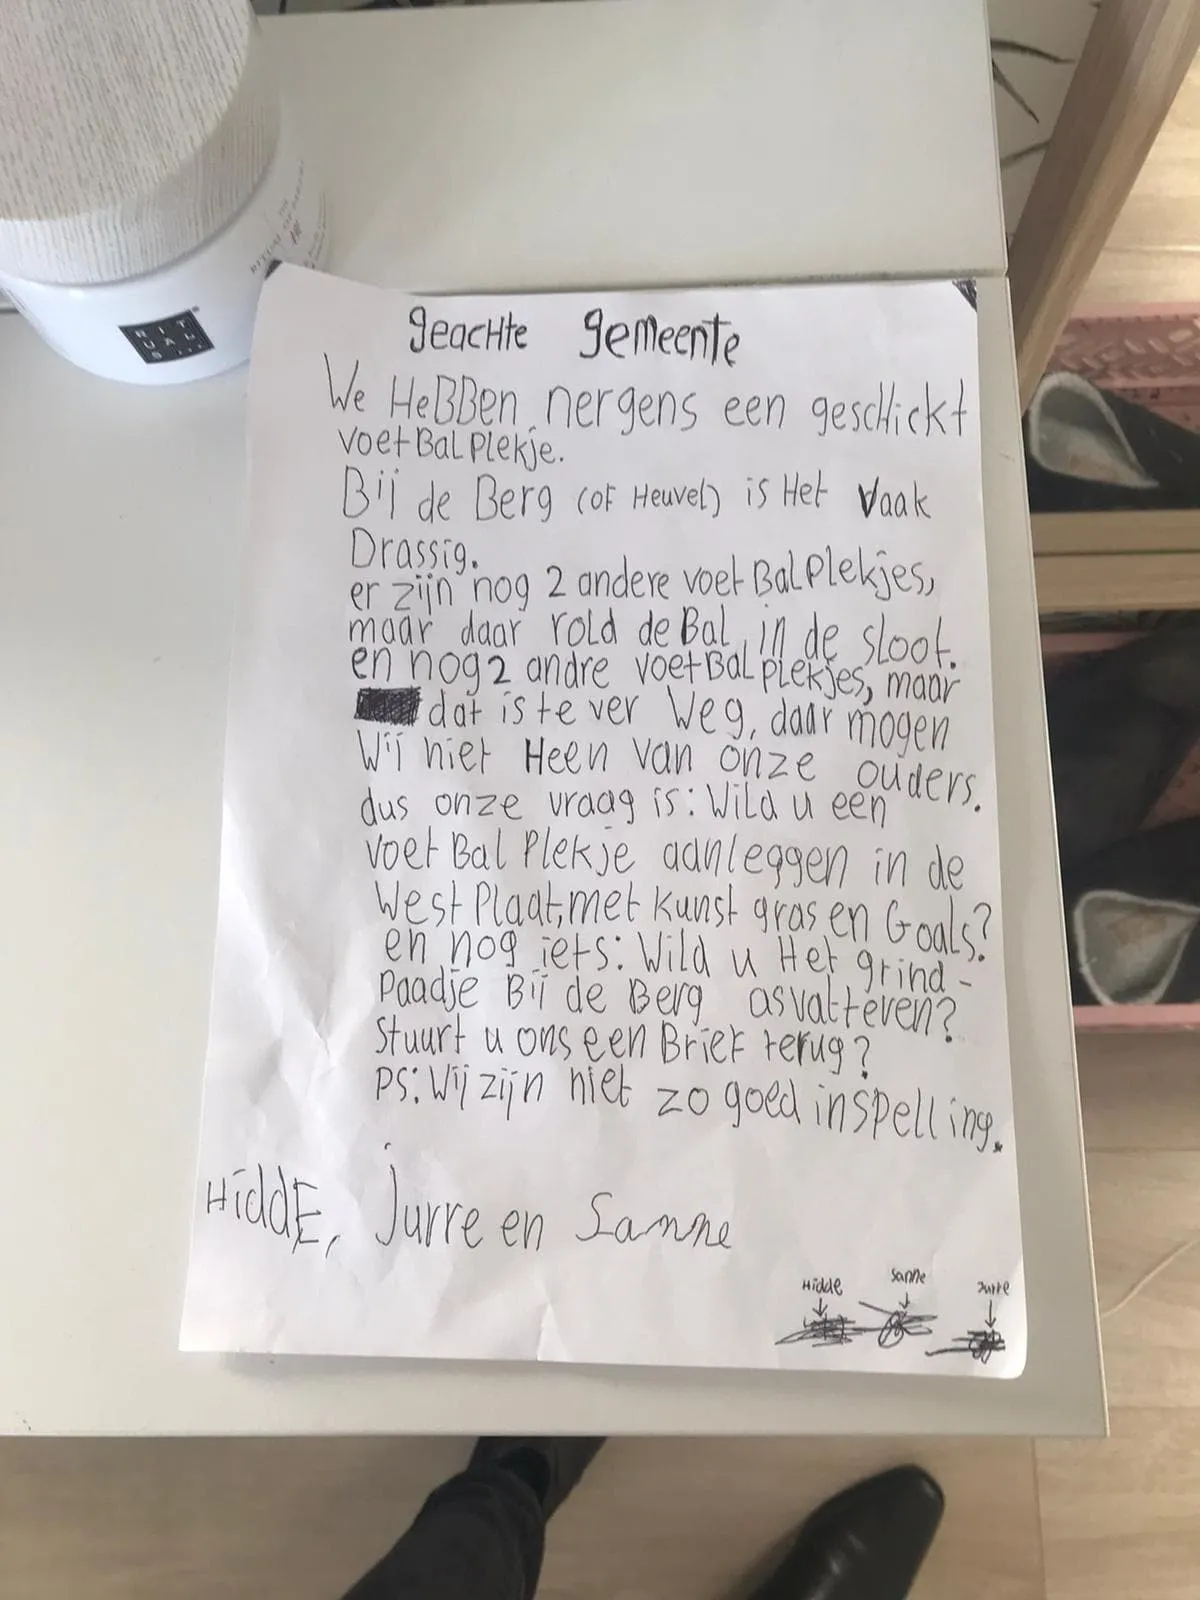 RITUALS
geacHte gemeente
We HeBBen nergens een gescHickt
voetBalPlekje.
Bij de Berg (of Heuvel) is Het Vaak
Drassig.
er zijn nog 2 andere voetBalPlekjes,
maar daar rold de Bal in de sloot.
en nog 2 andre voetBalplekjes, maar
dat is te ver Weg, daar mogen
Wij niet Heen van onze ouders.
dus onze vraag is: Wild u een
voetBal Plekje aanleggen in de
West Plaat, met kunst gras en Goals?
en nog iets: Wild u Het grind-
Paadje Bij de Berg asvalteren?
Stuurt u ons een Brief terug?
PS: Wij zijn niet zo goed in spelling.
HiddE, Jurre en Sanne
Hidde Sanne Jurre